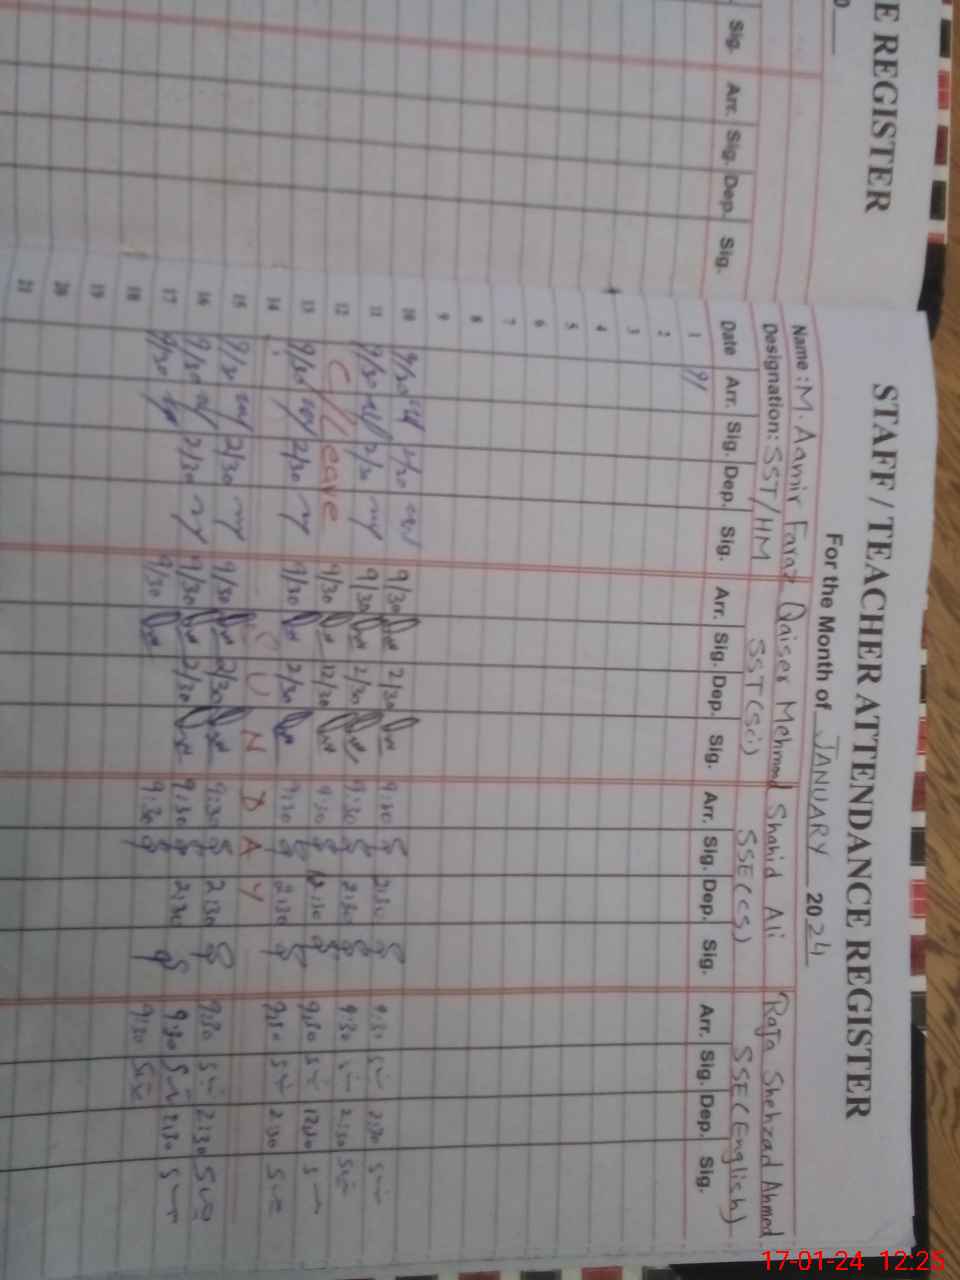 E REGISTER
0
Sig. Arr. Sig. Dep. Sig.
STAFF / TEACHER ATTENDANCE REGISTER
For the Month of JANUARY 2024
Name : M. Aamir Faraz Qaiser Mehmood Shahid Ali Raja Shehzad Ahmed
Designation: SST/HM SST(Sci) SSE(CS) SSE(English)
Date Arr. Sig. Dep. Sig. Arr. Sig. Dep. Sig. Arr. Sig. Dep. Sig. Arr. Sig. Dep. Sig.
1 9/
2
3
4
5
6
7
8
9
10 9/30 2/30 9/30 2/30 9:30 2:30 9:30 2:30
11 9/30 2/30 9/30 2/30 9:30 2:30 9:30 2:30
12 C/Leave 9/30 12/30 9:30 12:30 9:30 12:30
13 9/30 2/30 9/30 2/30 9:30 2:30 9:30 2:30
14 S U N D A Y
15 9/30 2/30 9/30 2/30 9:30 2:30 9:30 2:30
16 9/30 2/30 9/30 2/30 9:30 2:30 9:30 2:30
17 9/30 9/30 9:30 9:30
18
19
20
21
17-01-24 12:25